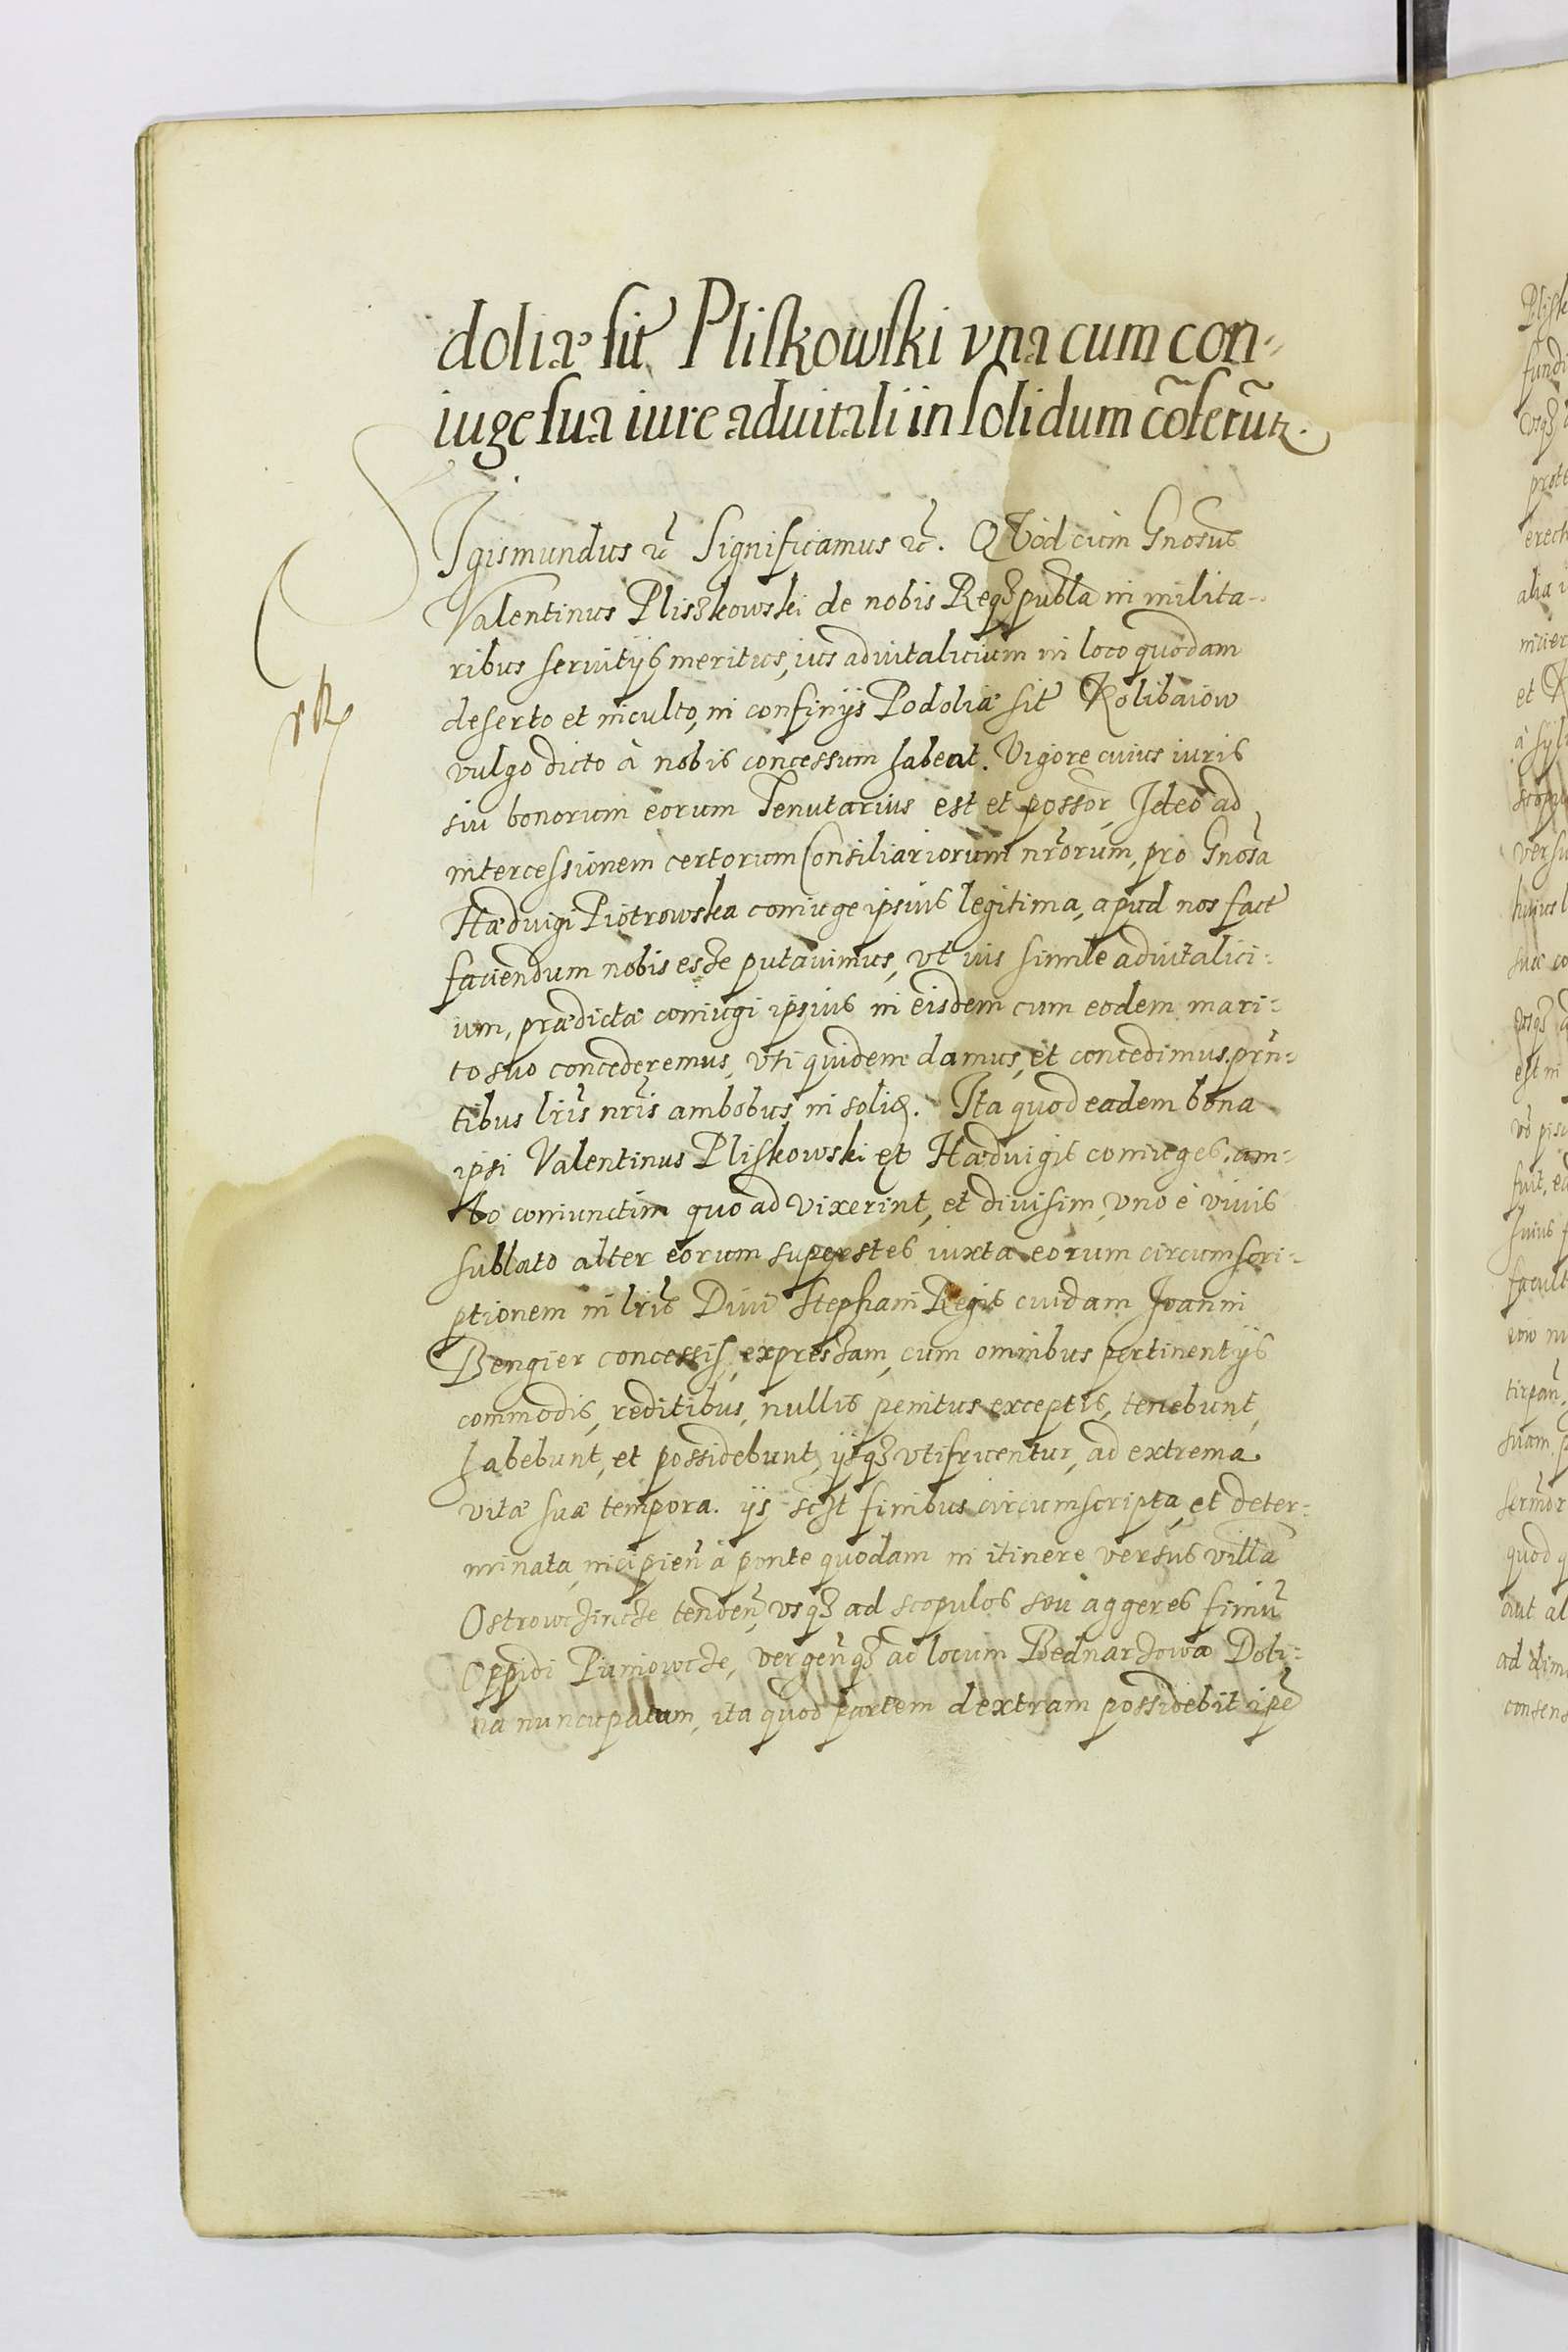 doliæ sit Pliskowski vna cum con-
iuge sua iure aduitali in solidum cõfertur.
Sigismundus etc Significamus etc. QVod cum Gnosus
Valentinus Pliszkowski de nobis Reqꝫ publa in milita-
ribus seruitijs meritus, ius aduitalicium in loco quodam
deserto et inculto, in confinijs Podoliæ sit Kolibaiow
vulgo dicto à nobis concessum habeat. Vigore cuius iuris
sui bonorum eorum Tenutarius est et possor, Ideo ad
intercessionem certorum Consiliariorum nrorum, pro Gnosa
Hæduigi Piotrowska coniuge ipsius legitima, apud nos fact
faciendum nobis esse putauimus, vt ius simile aduitalici-
um, prædictæ coniugi ipsius in eisdem cum eodem mari-
to suo concederemus, vti quidem damus, et concedimus prn-
tibus lris nris ambobus in solid. Ita quod eadem bona
ipsi Valentinus Pliskowski et Hæduigis coniuges, am-
bo coniunctim quo ad vixerint, et diuisim, vno è viuis
sublato alter eorum superstes iuxta eorum circumscri-
ptionem in lris Diui Stephani Regis cuidam Joanni
Bengier concessis, expressam, cum omnibus pertinentijs
commodis, reditibus, nullis penitus exceptis, tenebunt,
habebunt, et possidebunt, ijsqꝫ vtifruentur, ad extrema
vitæ suæ tempora. ijs sczt finibus circumscripta, et deter-
minata, incipien à ponte quodam in itinere versus villã
Ostrowczincze tenden, vsqꝫ ad scopulos seu aggeres finiũ
Oppidi Paniowcze, vergenqꝫ ad locum Bednarzowa Doli-
na nuncupatum, ita quod partem dextram possidebit ipẽ